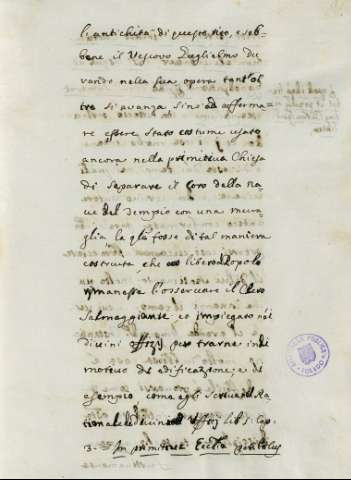 l'antichità di questo rito, e seb=
bene il Vescovo Guglielmo Du
rando nella sua opera tant'ol
tre si avanza sino ad afferma=
re essere stato costume usato
ancora nella primitiva Chiesa
di separare il Coro della na
ve del Tempio con una mura
glia la qle fosse di tal maniera
costruita, che libero al Popolo
rimanesse l'osservare il Clero
Salmeggiante, ed impiegato nei
divini uffizj per trarne indi
motivo di edificazione, e di
esempio, come egli scrive nel Ra
tionale divinor. Uffij lib. 1. cap.
3. In primitiva Ecclia